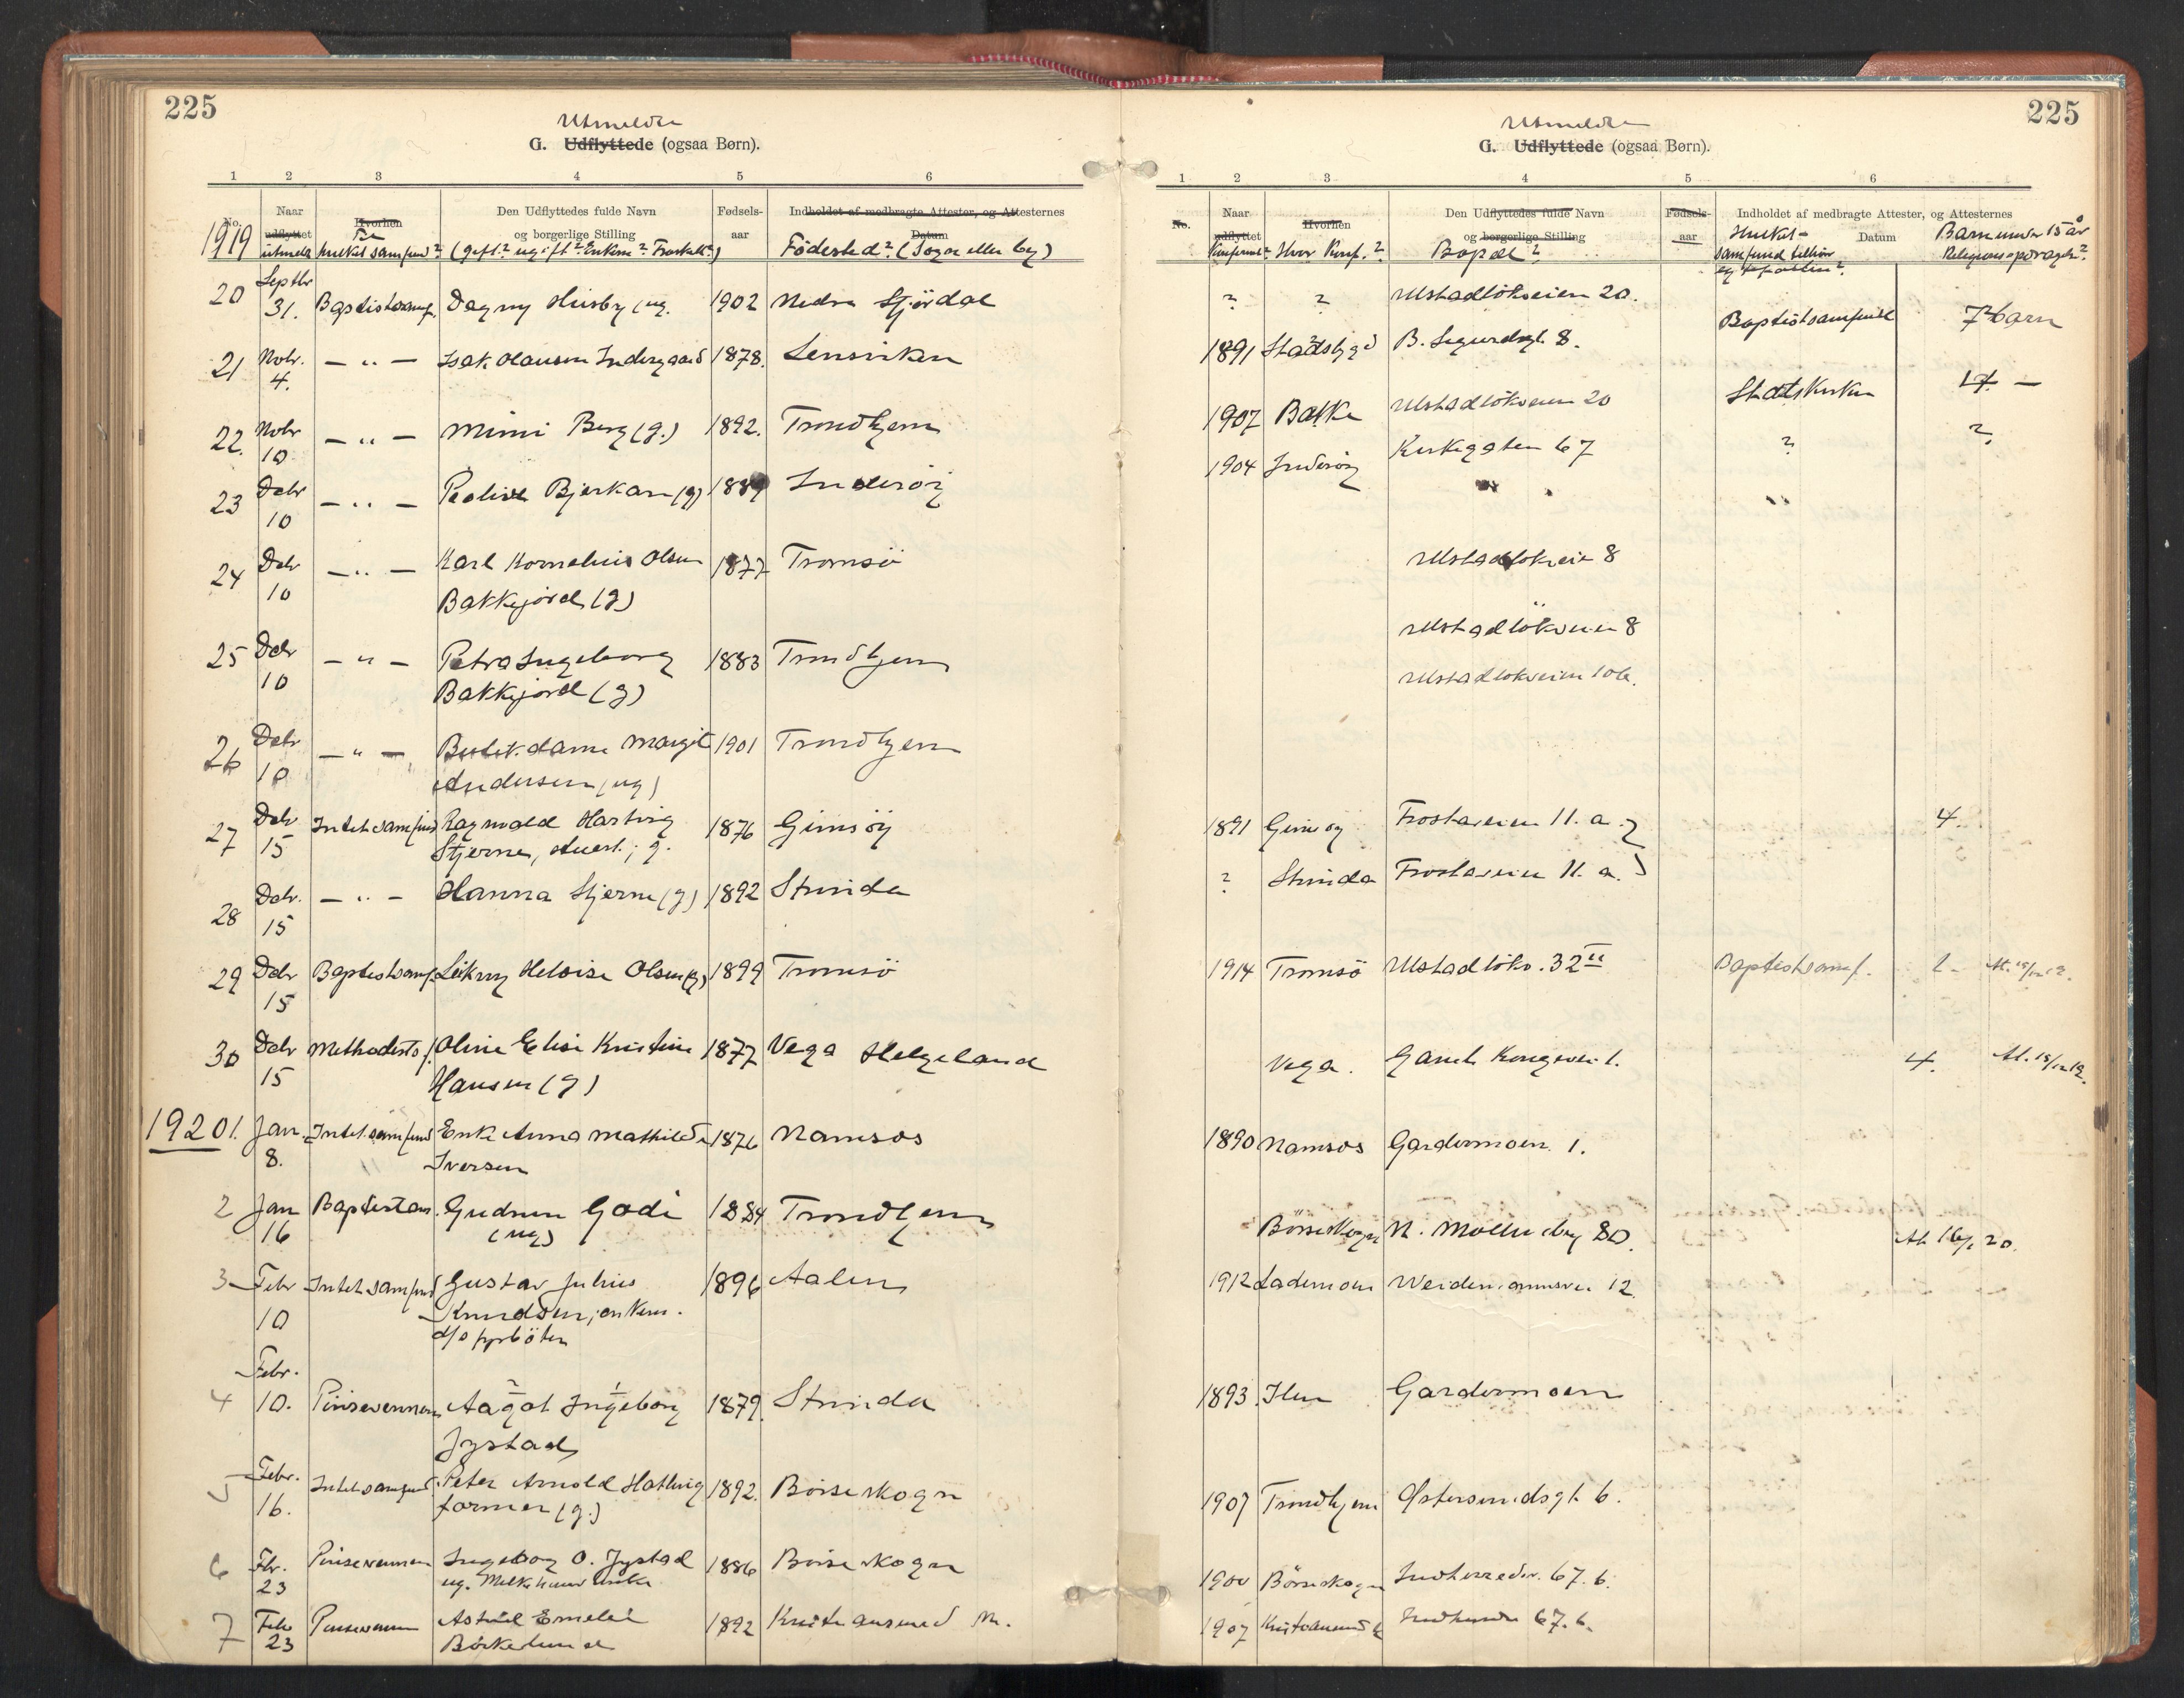 225
Utmeldte
G. Udflyttede (ogsaa Børn).
1 2 3 4 5 6
No. Naar udflyttet Hvorhen Den Udflyttedes fulde Navn og borgerlige Stilling Fødsels-aar Indholdet af medbragte Attester, og Attesternes Datum
1919 utmeldt Til hvilket samfund? (gift? ugift? Enkem? Frask?) Födested? (Sogn eller by)
20 Septbr 31. Baptistsamf. Dagny Husby (ug. 1902 Nedre Stjördal
21 Nobr. 4. — " — Isak Olausen Indergaard 1878. Lensviken
22. Nobr 10 — " — Mimi Berg (g.) 1892. Trondhjem
23 Debr 10 — " — Bjerkan (g) 1889 Inderöy
24 Debr 10 — " — Karl Kornelius Olsen 1877 Tromsö
Bakkejord (g)
25 Debr 10 — " — Petra Ingeborg 1883 Trondhjem
Bakkejord (g)
26 Debr 10 — " — Butik.dame Margit 1901 Trondhjem
Andersen (ug)
27 Debr 15 Intet samfund Ragnvald Hartvig 1876 Gimsöy
Stjerne, ; g.
28 Debr. 15 — " — Hanna Stjerne (g) 1892 Strinda
29 Debr 15 Baptistsamf. Heloise Olsen (g) 1899 Tromsö
30 Debr 15 Methodists. Oline Elise Kristine 1877 Vega Helgeland
Hansen (g)
1920 1. Jan. 8. Intet samfund Enke Anna Mathilde 1876 Namsos
Iversen
2 Jan 16 Baptistsam. Gudrun Godi 1884 Trondhjem
(ug)
3 Febr 10 Intet samfund Gustav Julius 1896 Aalen
Knudsen, ankem.
d/s fyrböter
4 Febr. 10. Pinsevennen Aagot Ingeborg 1879. Strinda
Jystad
5 Febr. 16. Intet samfund Peter Arnold Hathvig 1892. Börseskogn
farmer (g.)
6 Fbr. 23 Pinsevennen Ingeborg O. Jystad 1886 Börseskogn
ug.
7 Febr 23 Pinsevennen Astrid Emelie 1892 Kristiansund N.
225
Utmeldte
G. Udflyttede (ogsaa Børn).
1 2 3 4 5 6
No. Naar udflyttet Hvorhen Den Udflyttedes fulde Navn og borgerlige Stilling Fødsels-aar Indholdet af medbragte Attester, og Attesternes Datum
Konfirmert? Hvor Konf.? Bopæl? Hvilket samfund tilhörer ægtefællen? Barn under 15 år Religions-opdragelse?
? ? Ulstadlökveien 20.
1891 Stadsbygd B. Sigurdsgt. 8. Baptistsamfund 7 barn
1907 Bakke Ulstadlökveien 20 Statskirken 17 —
1904 Inderöy Kirkegaten 67 ? ?
Ulstadlökvein 8
Ulstadlökveien 8
Ulstadlökveien 10b.
1891 Gimsöy Frostaveien 11. a. 4.
? Strinda Frostaveien 11. a.
1914 Tromsö Ulstadlökv. 32 II Baptistsamf. 2 At. 15/12 19.
Vega. Gamle Kongevei 1. 4. At. 15/12 19.
1890 Namsos Gardermoen 1.
Börseskogn N. Möllenberg 80. At 16/1 20.
1912 Lademoen Weidemannsvei 12
1893. Ilen Gardermoen
1907 Trondhjem Östersundsgt. 6.
1900 Börseskogn Indherredsv. 67. b.
1907 Kristiansund 67. b.